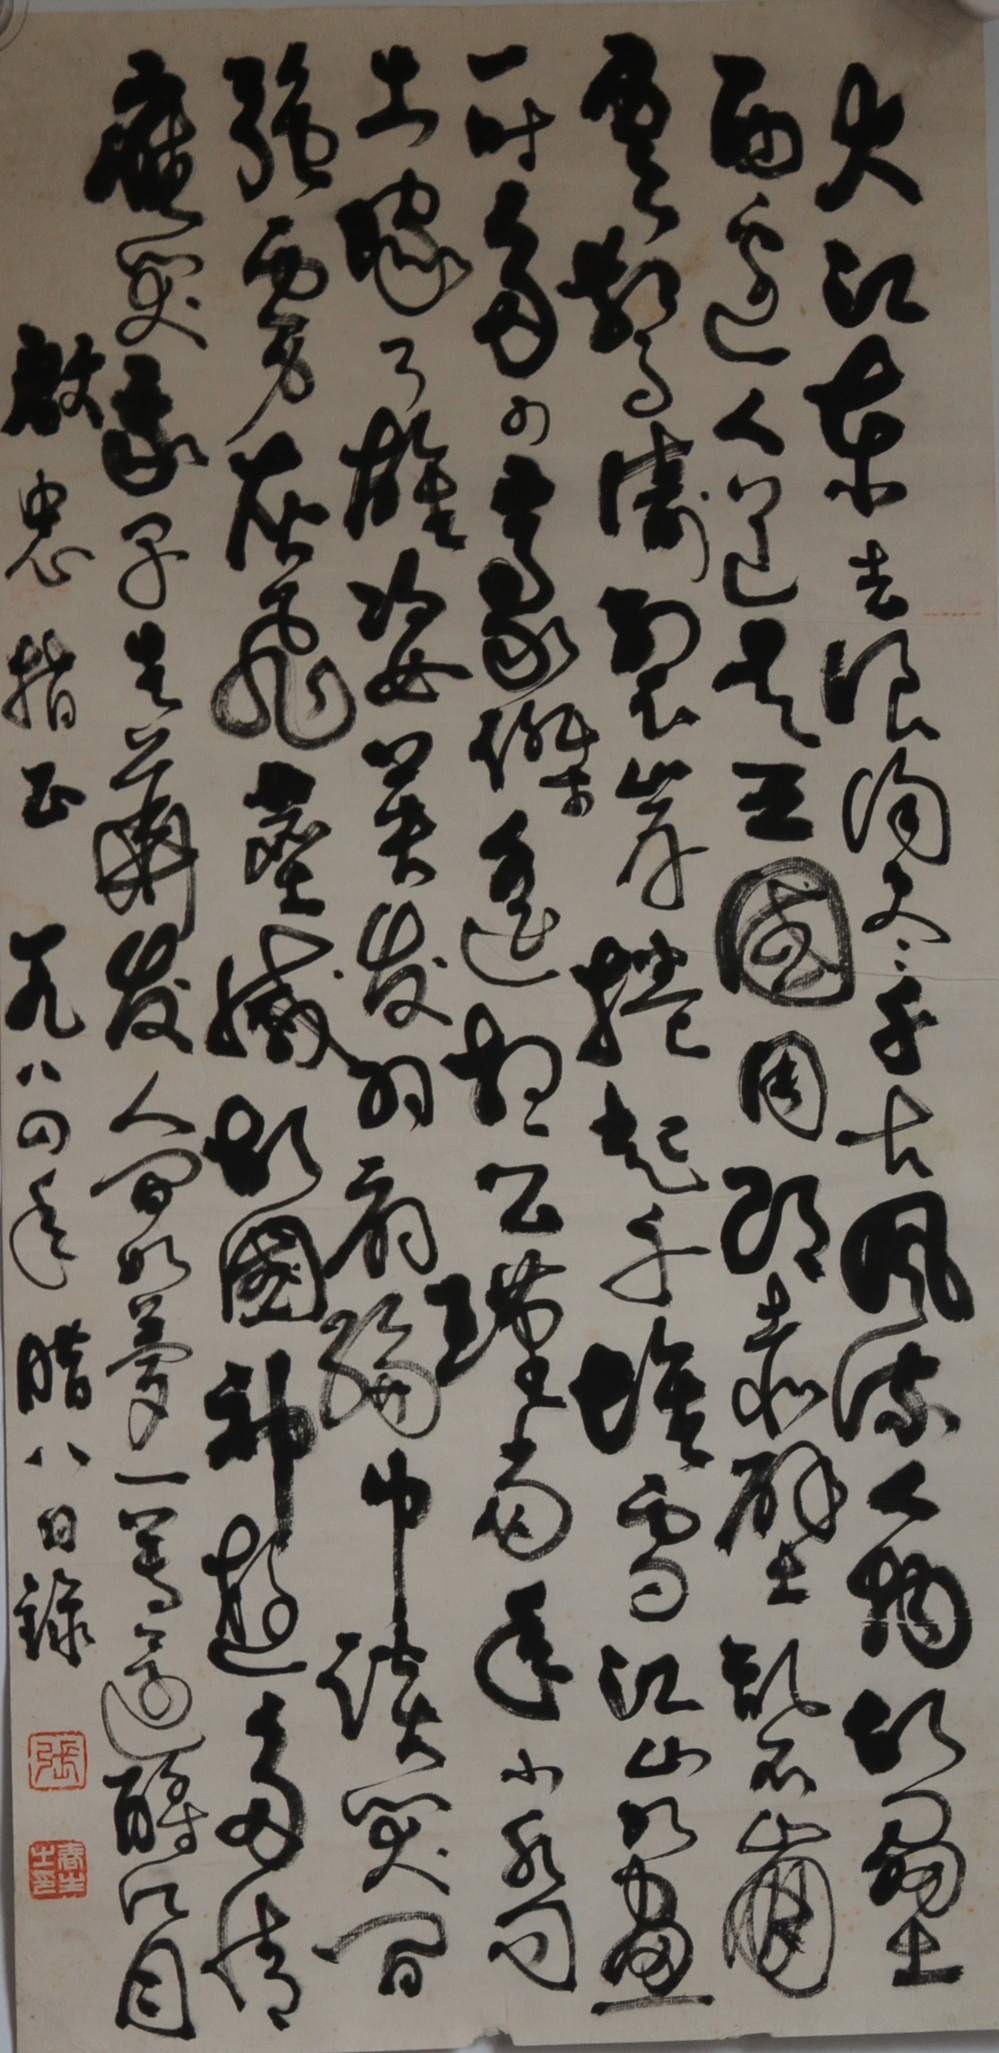 大江東去浪淘尽千古風流人物故壘
西邊人道是三國周郎赤壁亂石崩
雲驚濤裂岸捲起千堆雪江山如畫
一时多少豪傑遙想公瑾當年小喬
出嫁了雄姿英发羽扇綸巾談笑間
強虜灰飛煙滅故國神遊多情
應笑我早生華发人間如夢一尊還酹江月
啟忠指正 一九八四年腊八日録
張